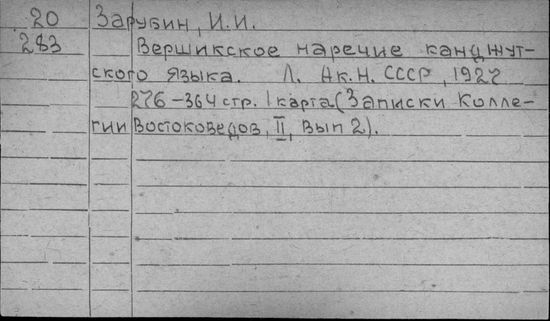 20 Зарубин, И.И.
283 Вершикское наречие канджут-
ского языка. Л. Ак.Н. СССР, 1927
276-364 стр. 1 карта (Записки Колле-
гии Востоковедов, II, вып 2).